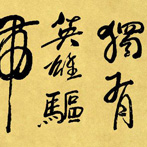 獨有
英雄驅
虎